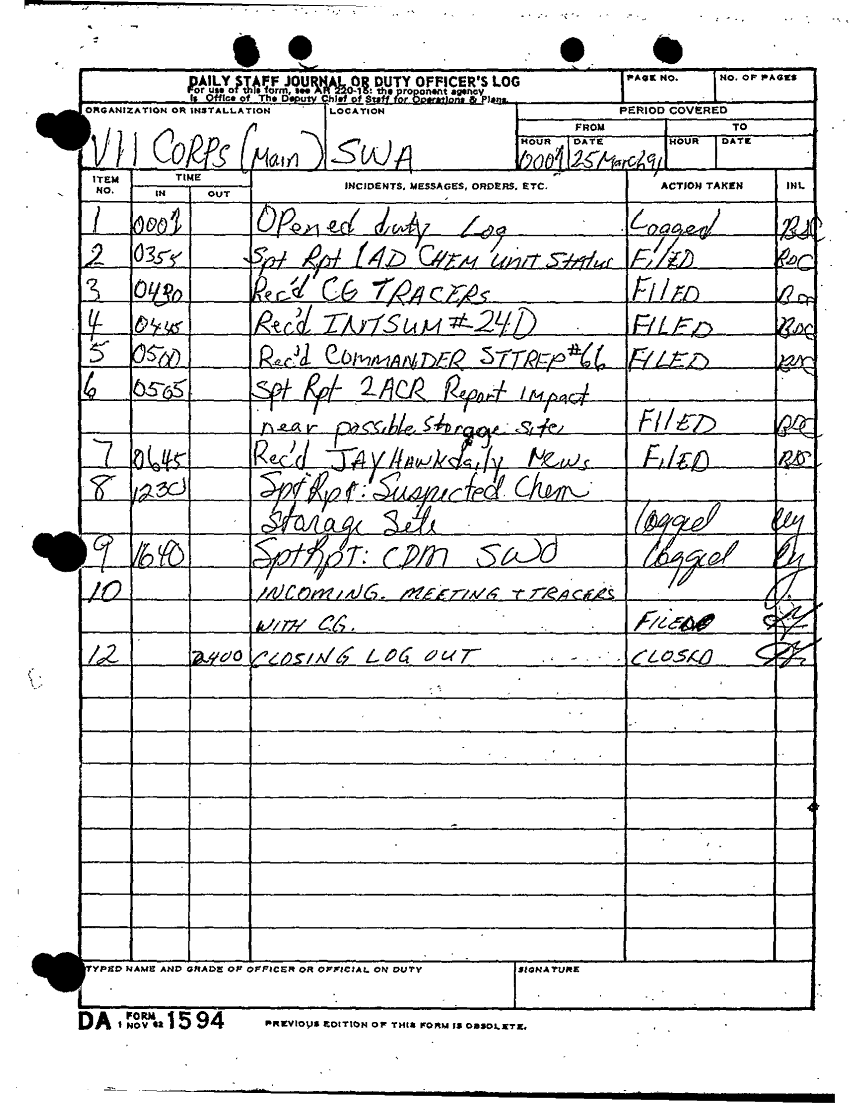 DAILY STAFF JOURNAL OR DUTY OFFICER'S LOG
For use of this form, see AR 220-15; the proponent agency
is Office of The Deputy Chief of Staff for Operations & Plans.
PAGE NO. NO. OF PAGES
ORGANIZATION OR INSTALLATION LOCATION PERIOD COVERED
FROM TO
HOUR DATE HOUR DATE
VII CORPS (Main) SWA 0001 25 March 91
ITEM NO. TIME INCIDENTS, MESSAGES, ORDERS, ETC. ACTION TAKEN INL
IN OUT
1 0001 Opened duty Log Logged
2 0355 Spt Rpt 1AD CHEM UNIT Status FILED BDC
3 0430 Rec'd CG TRACERS FILED
4 0445 Rec'd INTSUM #24D FILED BDC
5 0500 Rec'd COMMANDER SITREP #66 FILED BDC
6 0505 Spt Rpt 2ACR Report Impact
near possible storage site FILED BDC
7 0645 Rec'd JAYHAWK daily News FILED
8 1230 Spt Rpt: Suspected Chem
Storage Site logged
9 1640 Spt Rpt: CDM SWO logged
10 INCOMING. MEETING + TRACERS
WITH C.G. FILED
12 2400 CLOSING LOG OUT CLOSED
TYPED NAME AND GRADE OF OFFICER OR OFFICIAL ON DUTY SIGNATURE
DA FORM 1 NOV 62 1594 PREVIOUS EDITION OF THIS FORM IS OBSOLETE.